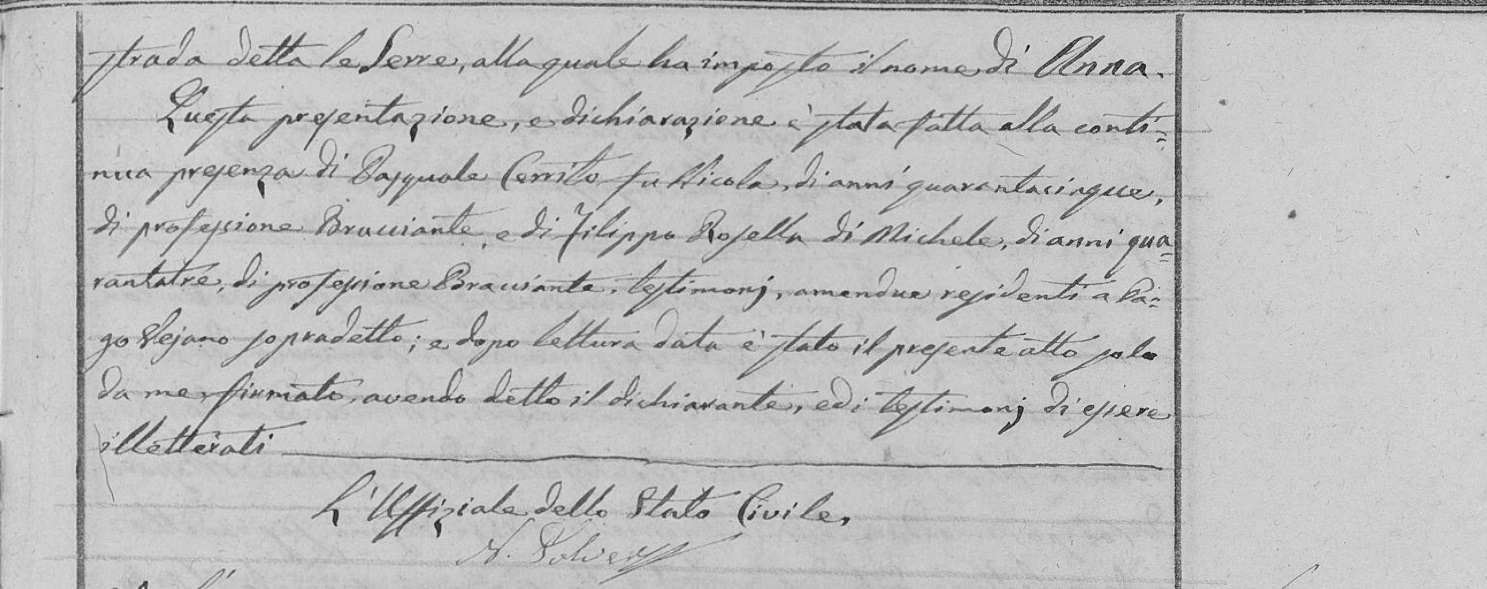 strada detta le Serre, alla quale ha imposto il nome di Anna.
Questa presentazione, e dichiarazione è stata fatta alla conti=
nua presenza di Pasquale Cerrito fu Nicola, di anni quarantacinque,
di professione Bracciante, e di Filippo Rosella di Michele, di anni qua=
rantatre, di professione Bracciante, testimonj, amendue residenti a Pa=
go Vejano sopradetto; e dopo lettura data è stato il presente atto solo
da me firmato, avendo detto il dichiarante, ed i testimonj di essere
illetterati
L'Uffiziale dello Stato Civile,
N.